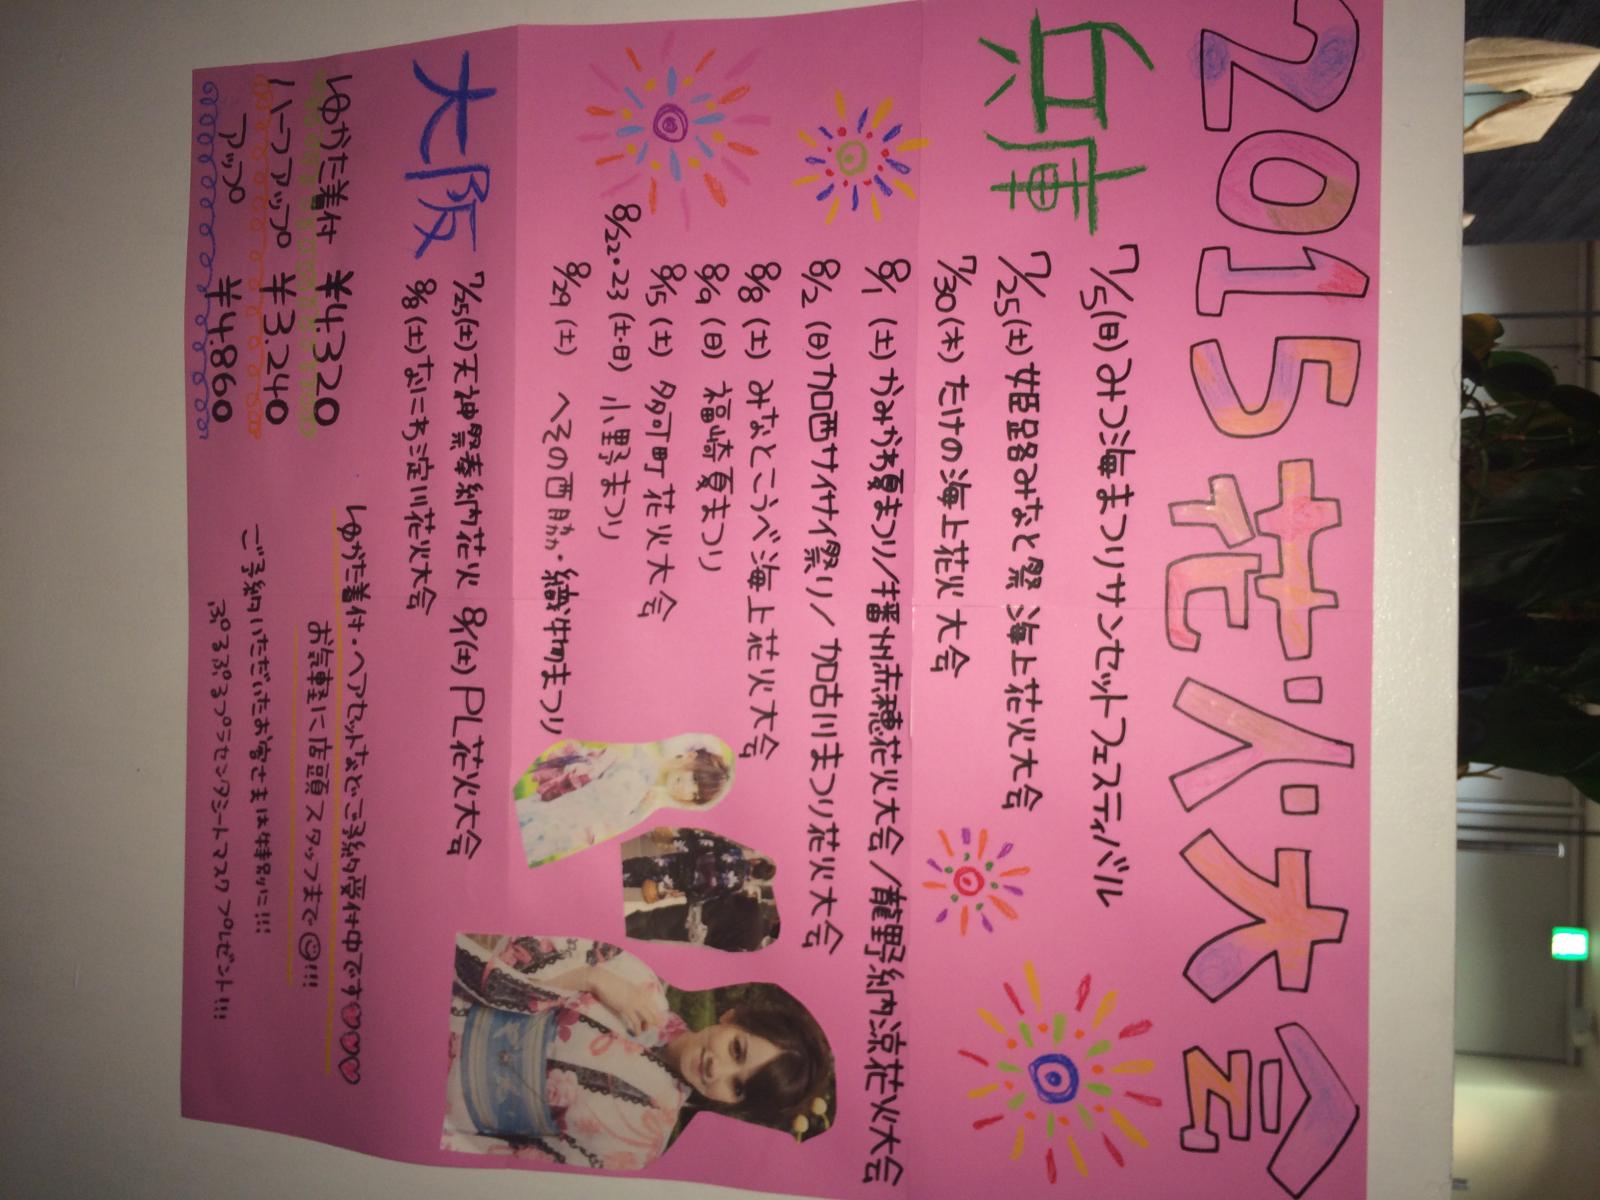 2015花火大会
兵庫
7/5(日)みつ海まつりサンセットフェスティバル
7/25(土)姫路みなと祭 海上花火大会
7/30(木)たけの海上花火大会
8/1(土)かみかわ夏まつり/播州赤穂花火大会/龍野納涼花火大会
8/2(日)加西サイサイ祭り/加古川まつり花火大会
8/8(土)みなとこうべ海上花火大会
8/9(日)福崎夏まつり
8/15(土)多可町花火大会
8/22・23(土・日)小野まつり
8/29(土)へその西脇・織物まつり
大阪
7/25(土)天神祭奉納花火 8/1(土)PL花火大会
8/8(土)なにわ淀川花火大会
ゆかた着付 ¥4.320
ハーフアップ ¥3.240
アップ ¥4.860
ゆかた着付・ヘアセットなどご予約受付中です
お気軽に店頭スタッフまで!!!
ご予約いただいたお客さまは特別に!!!
ぷるぷるプラセンタシートマスクプレゼント!!!